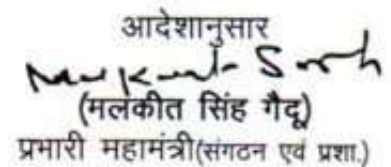 आदेशानुसार
(मलकीत सिंह गैदू)
प्रभारी महामंत्री(संगठन एवं प्रशा.)